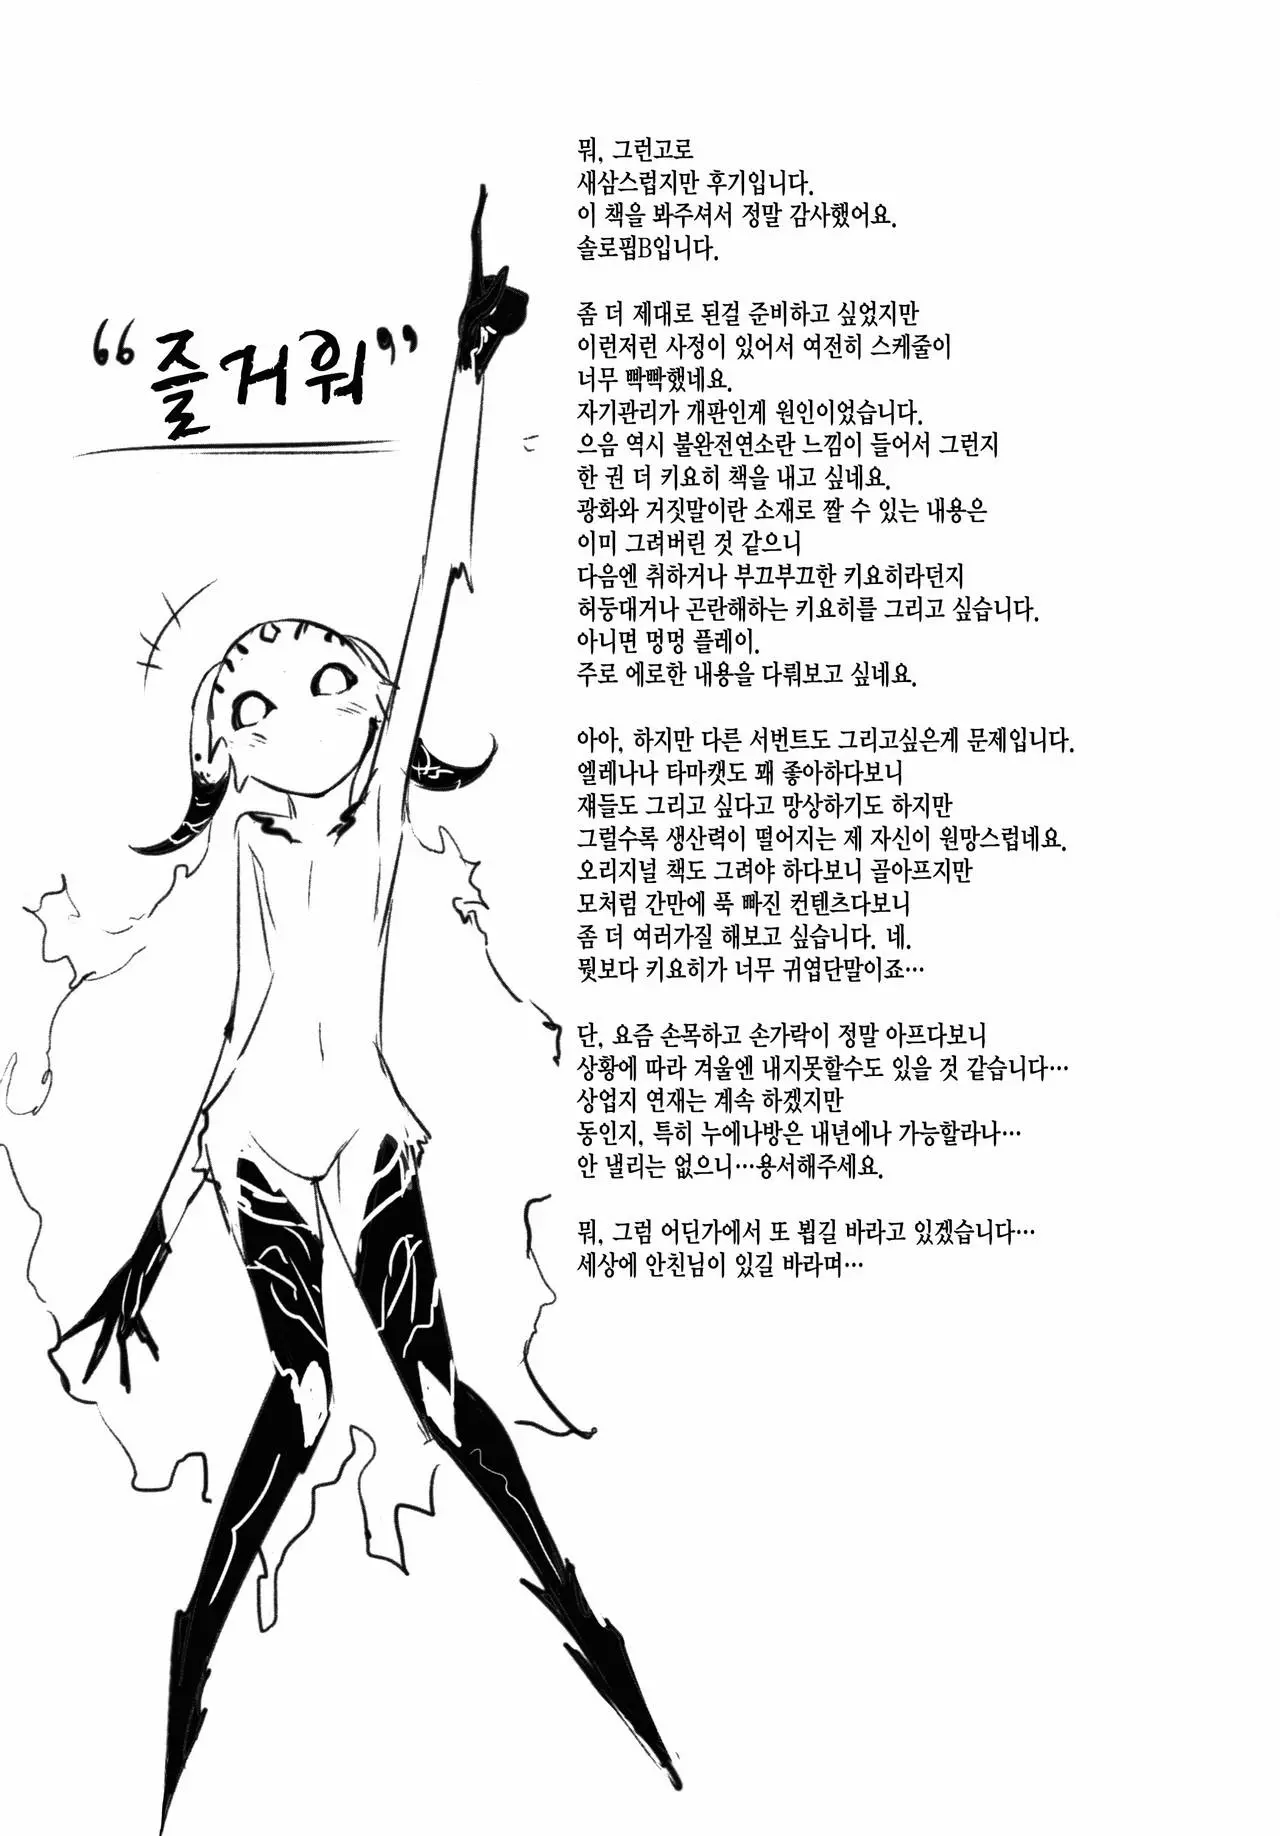 “즐거워”
뭐, 그런고로
새삼스럽지만 후기입니다.
이 책을 봐주셔서 정말 감사했어요.
솔로핍B입니다.
좀 더 제대로 된걸 준비하고 싶었지만
이런저런 사정이 있어서 여전히 스케줄이
너무 빡빡했네요.
자기관리가 개판인게 원인이었습니다.
으음 역시 불완전연소란 느낌이 들어서 그런지
한 권 더 키요히 책을 내고 싶네요.
광화와 거짓말이란 소재로 짤 수 있는 내용은
이미 그려버린 것 같으니
다음엔 취하거나 부끄부끄한 키요히라던지
허둥대거나 곤란해하는 키요히를 그리고 싶습니다.
아니면 멍멍 플레이.
주로 에로한 내용을 다뤄보고 싶네요.
아아, 하지만 다른 서번트도 그리고싶은게 문제입니다.
엘레나나 타마캣도 꽤 좋아하다보니
쟤들도 그리고 싶다고 망상하기도 하지만
그럴수록 생산력이 떨어지는 제 자신이 원망스럽네요.
오리지널 책도 그려야 하다보니 골아프지만
모처럼 간만에 푹 빠진 컨텐츠다보니
좀 더 여러가질 해보고 싶습니다. 네.
뭣보다 키요히가 너무 귀엽단말이죠…
단, 요즘 손목하고 손가락이 정말 아프다보니
상황에 따라 겨울엔 내지못할수도 있을 것 같습니다…
상업지 연재는 계속 하겠지만
동인지, 특히 누에나방은 내년에나 가능할라나…
안 낼리는 없으니…용서해주세요.
뭐, 그럼 어딘가에서 또 뵙길 바라고 있겠습니다…
세상에 안친님이 있길 바라며…